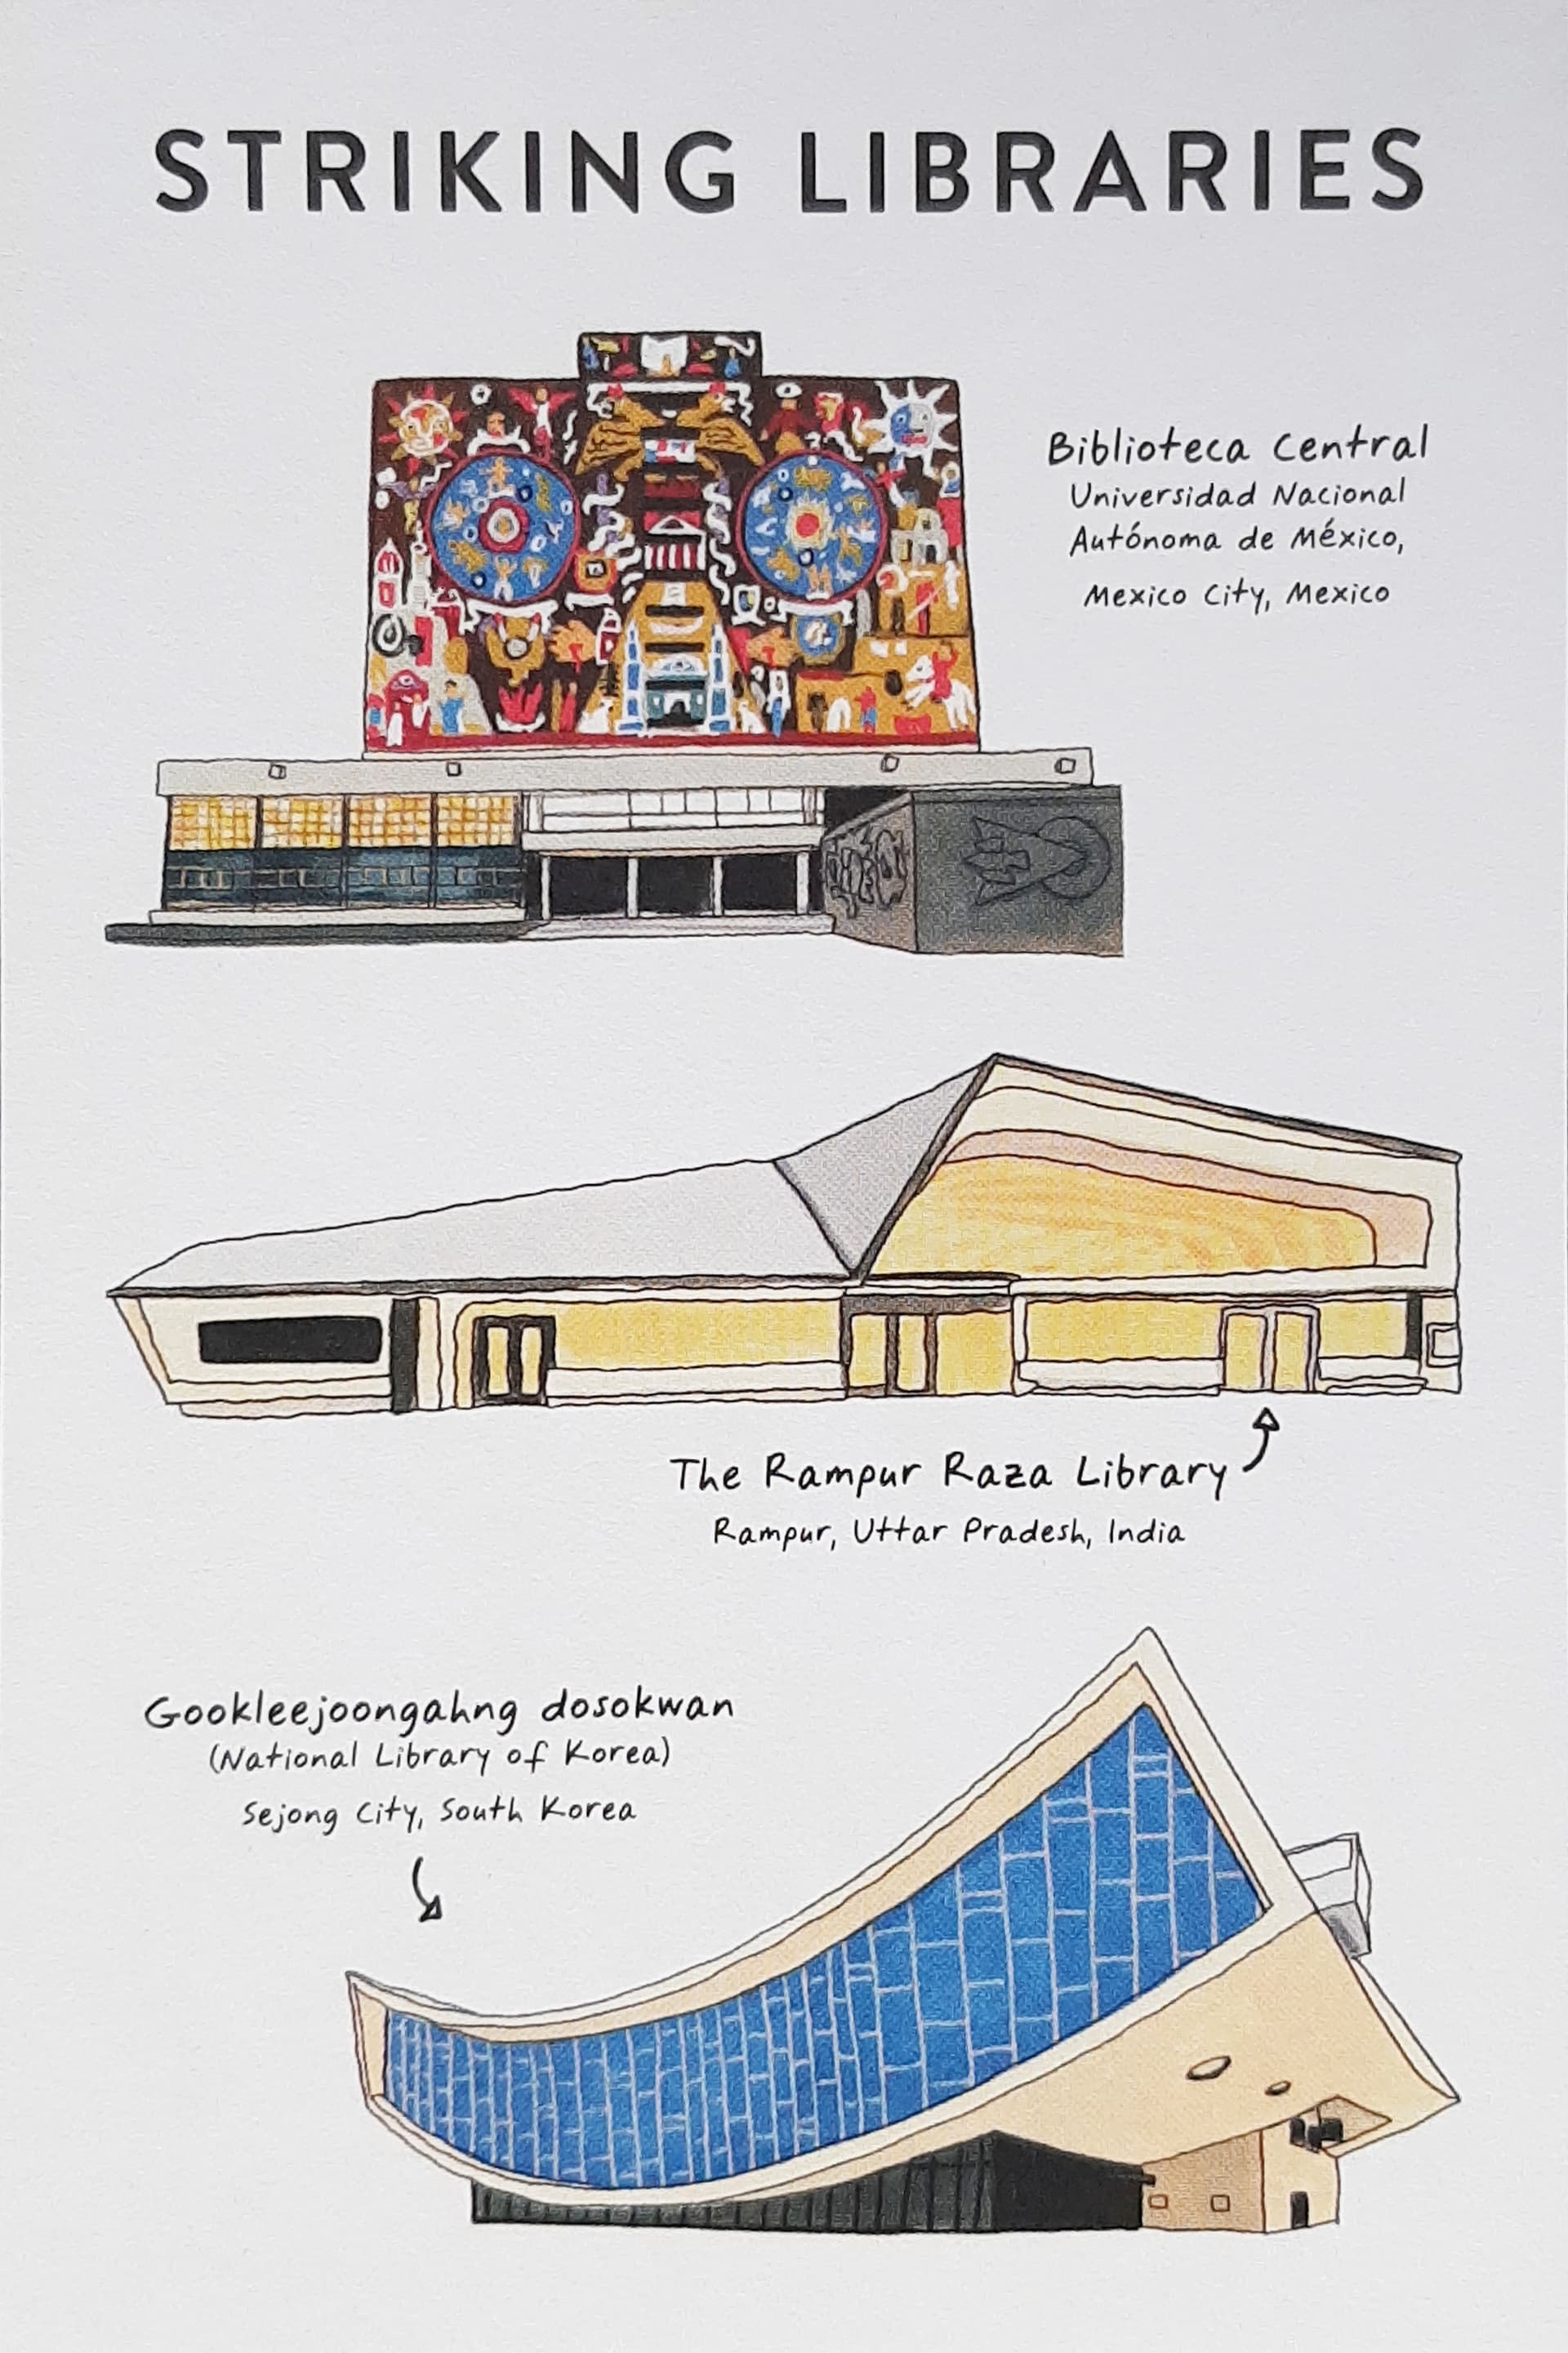 STRIKING LIBRARIES
Biblioteca Central
Universidad Nacional
Autónoma de México,
Mexico City, Mexico
The Rampur Raza Library
Rampur, Uttar Pradesh, India
Gookleejoongahng dosokwan
(National Library of Korea)
Sejong City, South Korea